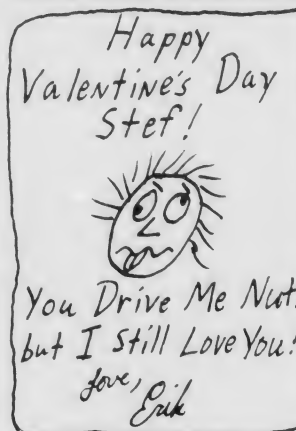 Happy
Valentine's Day
Stef!
You Drive Me Nuts
but I Still Love You!
Love,
Erik